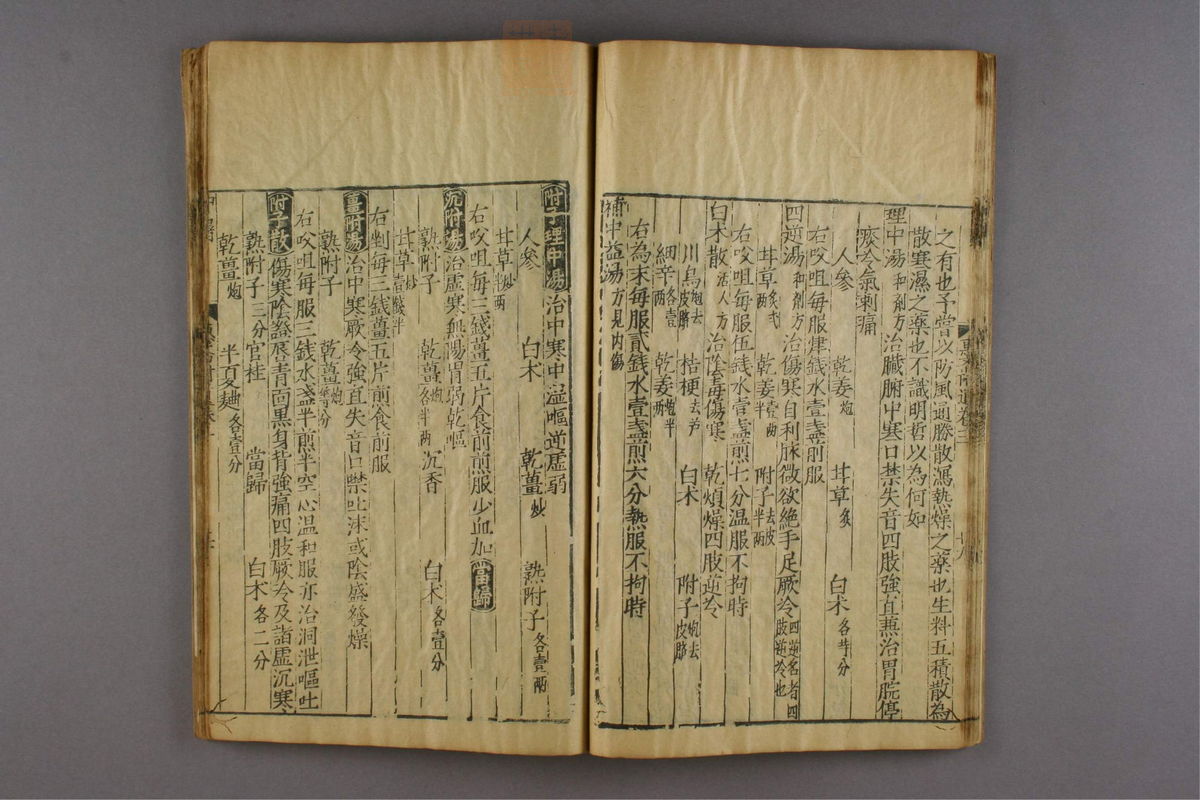 之有也予嘗以防風通勝散瀉熱燥之藥也生料五積散為
散寒濕之藥也不識明哲以為何如
理中湯 和劑方 治臟腑中寒口禁失音四肢強直蒸治胃脘停
痰冷氣刺痛
人參 乾姜炮 甘草炙 白术各等分
右㕮咀每服肆錢水壹盞煎服
四逆湯 和劑方 治傷寒自利脉微欲絶手足厥冷 四逆名者四肢逆冷也
甘草炙弍兩 乾姜壹兩 附子去皮半兩
右㕮咀每服伍錢水壹盞煎七分温服不拘時
白术散 活人方 治陰毒傷寒 乾煩燥四肢逆冷
川烏炮去皮臍 桔梗去芦 白术 附子炮去皮臍
細辛各壹兩 乾姜炮半兩
右為末每服貳錢水壹盞煎六分熱服不拘時
補中益湯 方見内傷
附子理中湯 治中寒中湿嘔逆虚弱
人參 白术 乾薑炒 熟附子各壹兩
甘草炒半兩
右㕮咀每三錢薑五片食前煎服少血加當歸
沉附湯 治虚寒無陽胃弱乾嘔
熟附子 乾薑炮各半兩 沉香 白术各壹分
甘草炒壹錢半
右剉每三錢薑五片煎食前服
薑附湯 治中寒厥冷強直失音口禁吐沫或陰盛發燥
熟附子 乾薑炮等分
右㕮咀每服三錢水盞半煎半空心温和服亦治洞泄嘔吐
附子散 傷寒陰證唇青面黒身背強痛四肢厥冷及諸虚沉寒
熟附子三分 官桂 當歸 白术各二分
乾薑炮 半夏麯各壹分